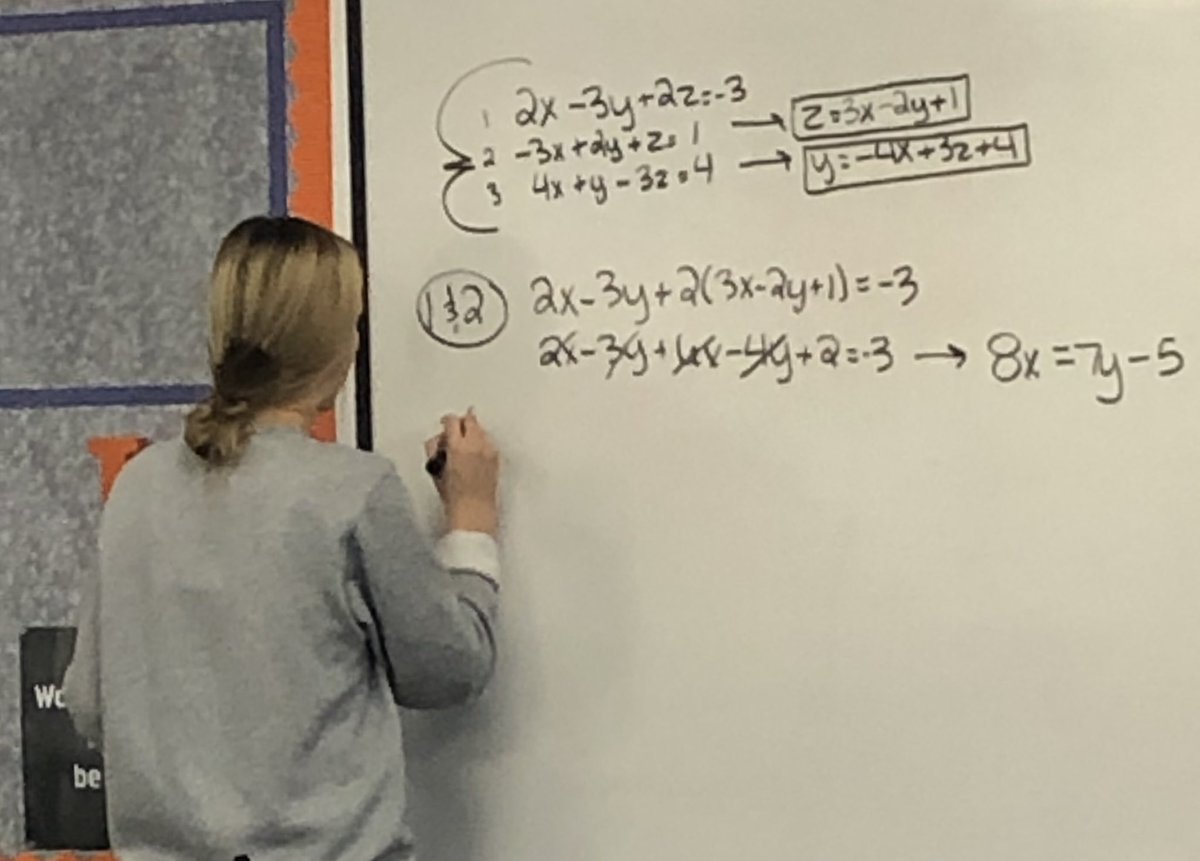 1 2x-3y+2z=-3
→ z=3x-2y+1
2 -3x+2y+z=1
3 4x+y-3z=4 → y=-4x+3z+4
1&2 2x-3y+2(3x-2y+1)=-3
2x-3y+6x-4y+2=-3 → 8x=7y-5
be